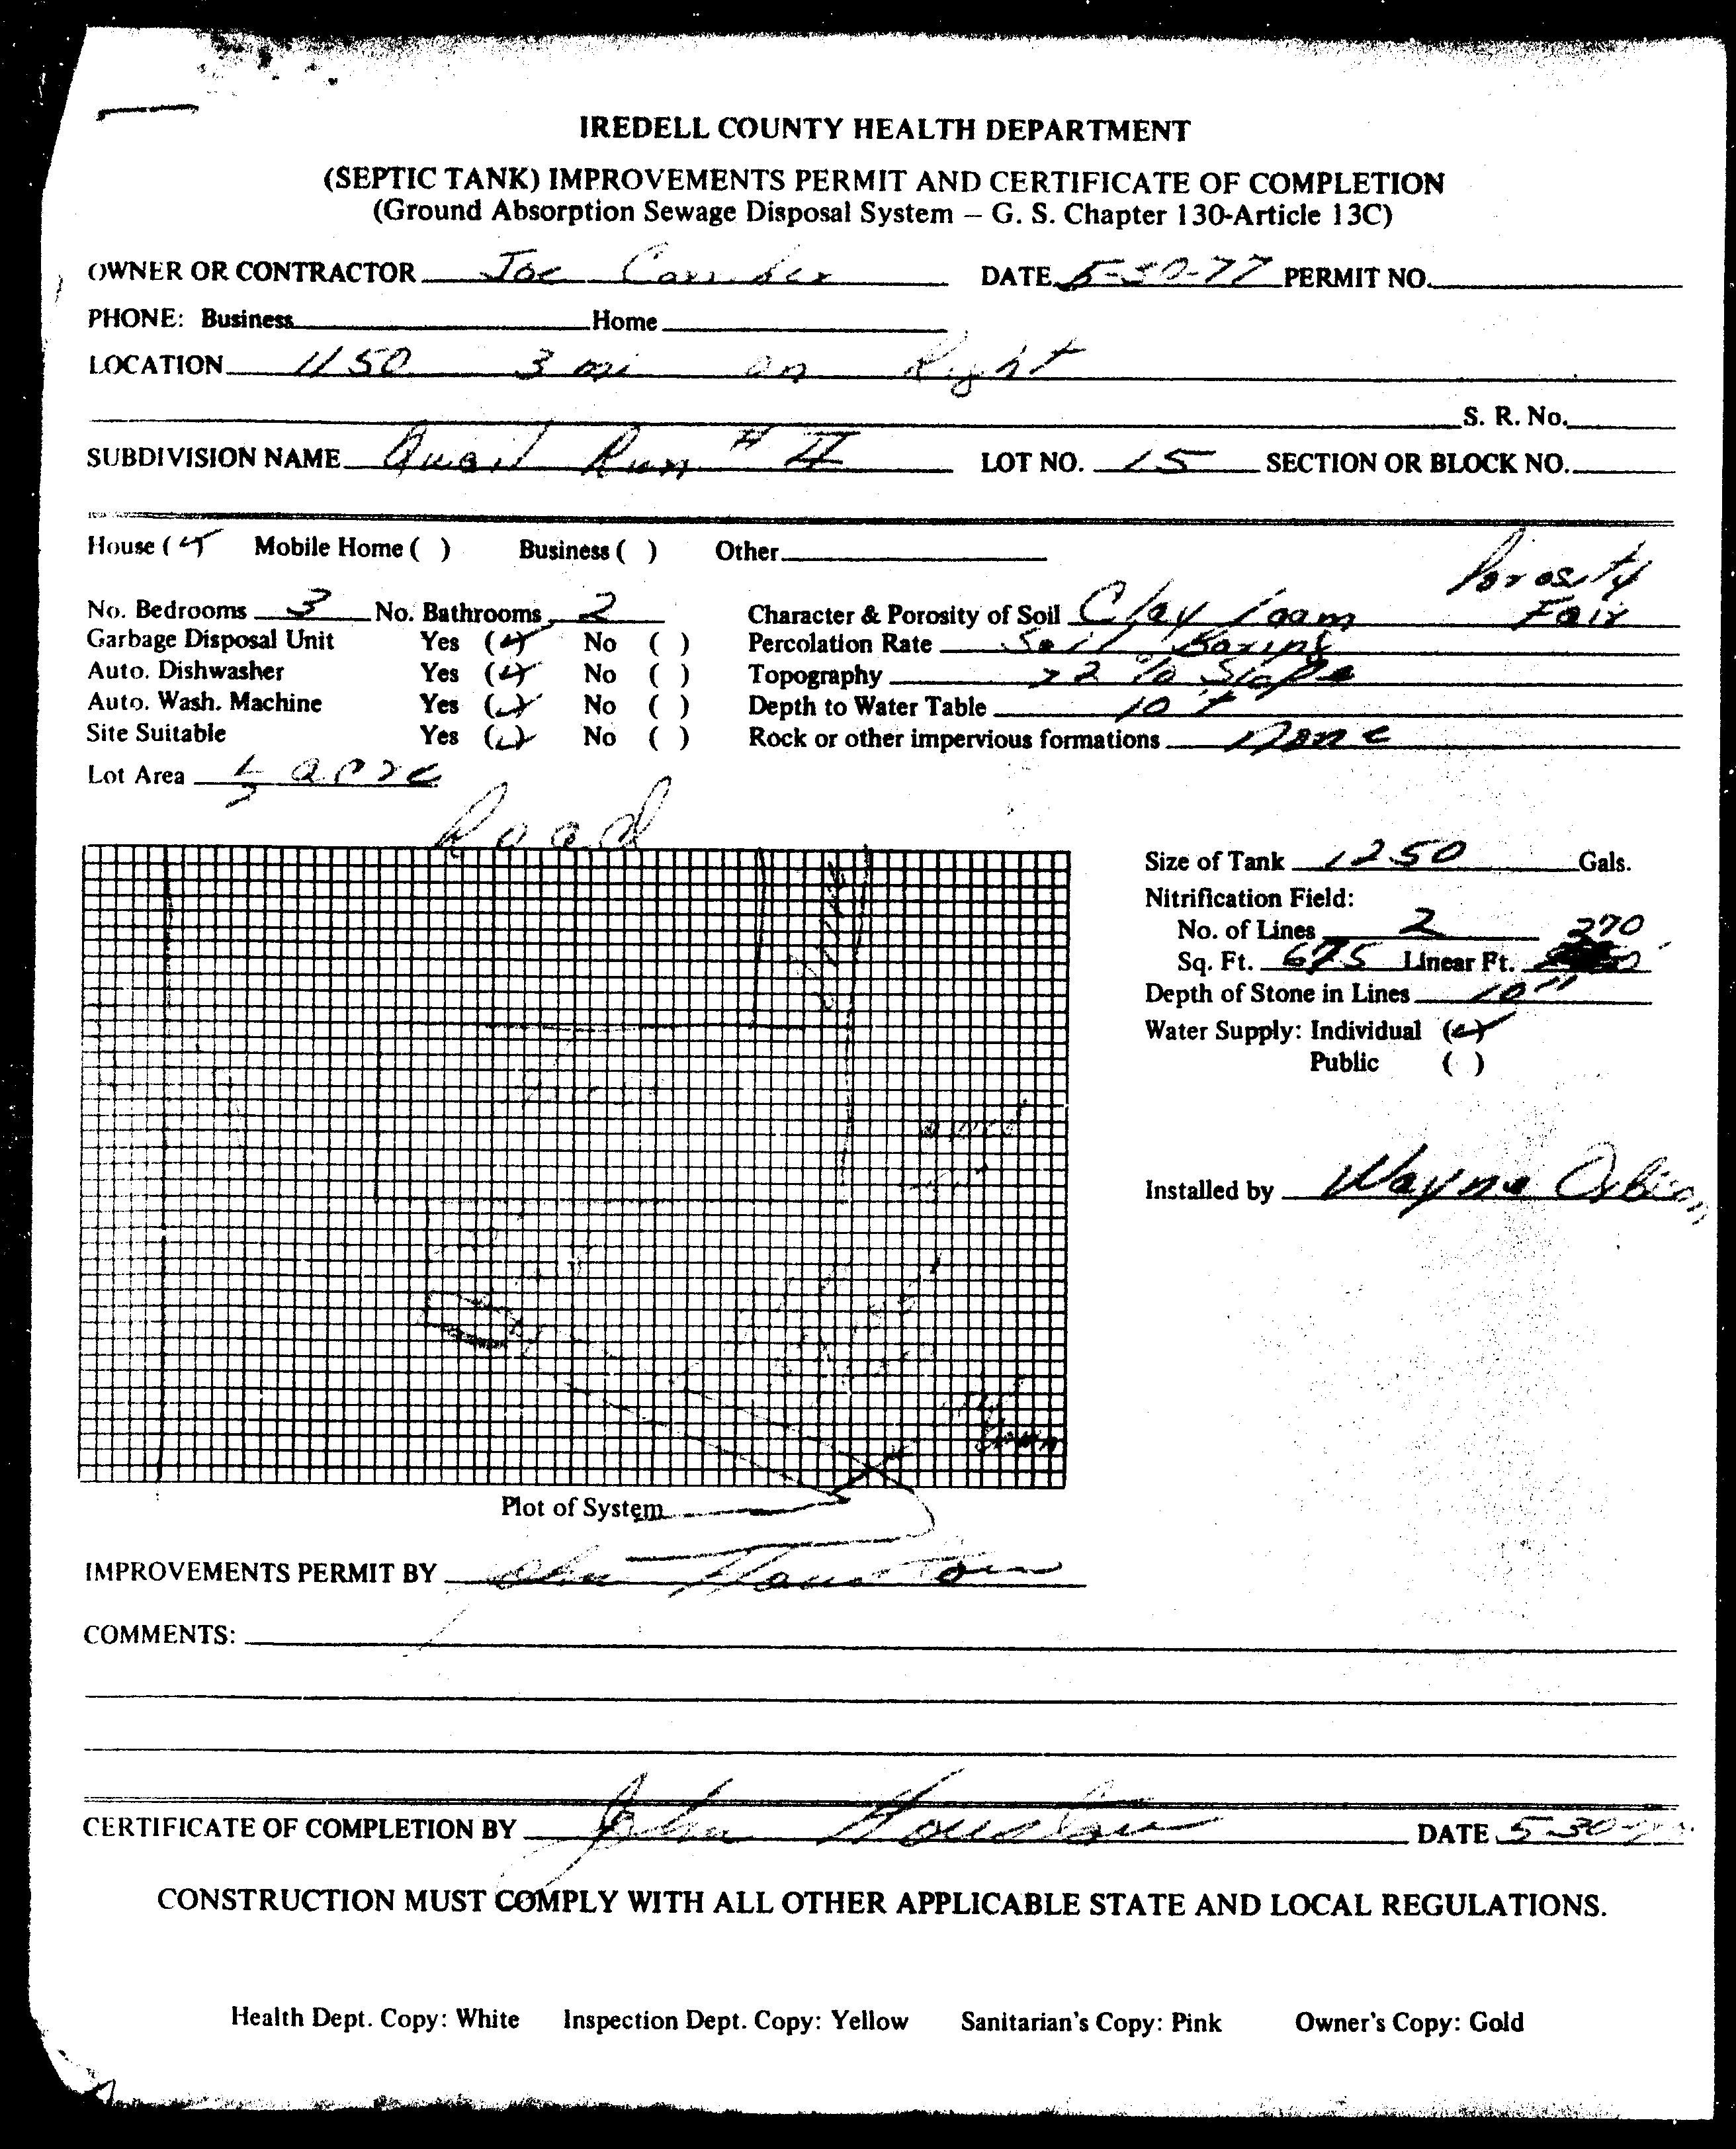 IREDELL COUNTY HEALTH DEPARTMENT
(SEPTIC TANK) IMPROVEMENTS PERMIT AND CERTIFICATE OF COMPLETION
(Ground Absorption Sewage Disposal System – G. S. Chapter 130-Article 13C)
OWNER OR CONTRACTOR Joe DATE 5-30-77 PERMIT NO.
PHONE: Business Home
LOCATION 1150 3 mi on Right
S. R. No.
SUBDIVISION NAME Quail Run # II LOT NO. 15 SECTION OR BLOCK NO.
House ( ) Mobile Home ( ) Business ( ) Other
Porosity
No. Bedrooms 3 No. Bathrooms 2 Character & Porosity of Soil Clay loam Fair
Garbage Disposal Unit Yes ( ) No ( ) Percolation Rate Soil Boring
Auto. Dishwasher Yes ( ) No ( ) Topography >2 % Slope
Auto. Wash. Machine Yes ( ) No ( ) Depth to Water Table 10 +
Site Suitable Yes ( ) No ( ) Rock or other impervious formations None
Lot Area 1/2 acre
Road
Size of Tank 1250 Gals.
Nitrification Field:
No. of Lines 2 270
Sq. Ft. 675 Linear Ft.
Depth of Stone in Lines 10"
Water Supply: Individual ( )
Public ( )
Installed by Wayne
Plot of System
IMPROVEMENTS PERMIT BY John Houston
COMMENTS:
CERTIFICATE OF COMPLETION BY John Houston DATE 5-30-
CONSTRUCTION MUST COMPLY WITH ALL OTHER APPLICABLE STATE AND LOCAL REGULATIONS.
Health Dept. Copy: White Inspection Dept. Copy: Yellow Sanitarian's Copy: Pink Owner's Copy: Gold